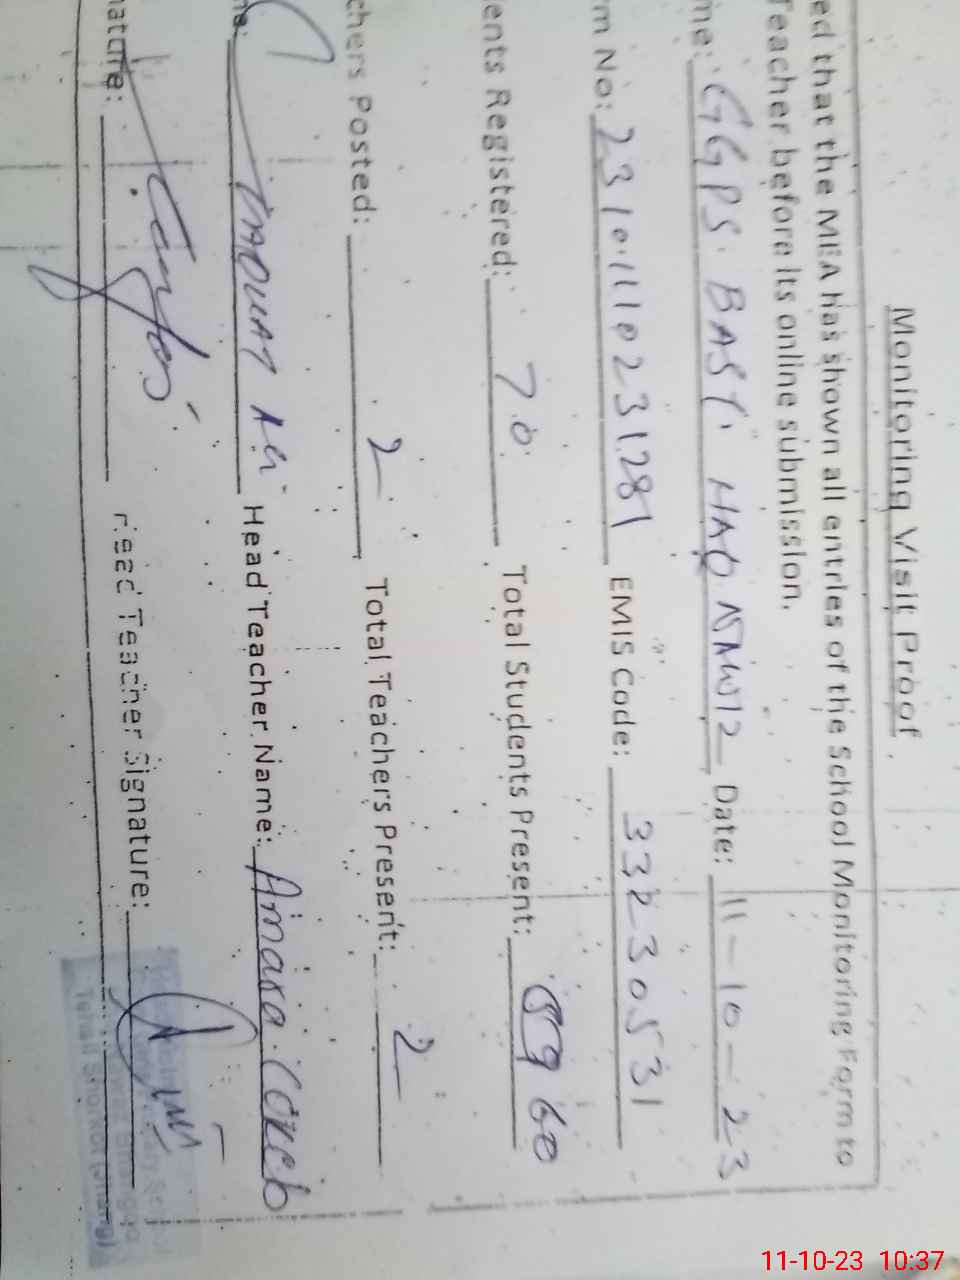 Monitoring Visit Proof
ed that the MEA has shown all entries of the School Monitoring Form to
Teacher before its online submission.
me: GGPS. BASTI HAQ NAWAZ Date: 11-10-23
rm No: 23101110231281 EMIS Code: 33230531
ents Registered: 70 Total Students Present: 60
chers Posted: 2 Total Teachers Present: 2
me: Head Teacher Name: Amara
nature: Head Teacher Signature:
Tehsil Shorkot (Jhang)
11-10-23 10:37